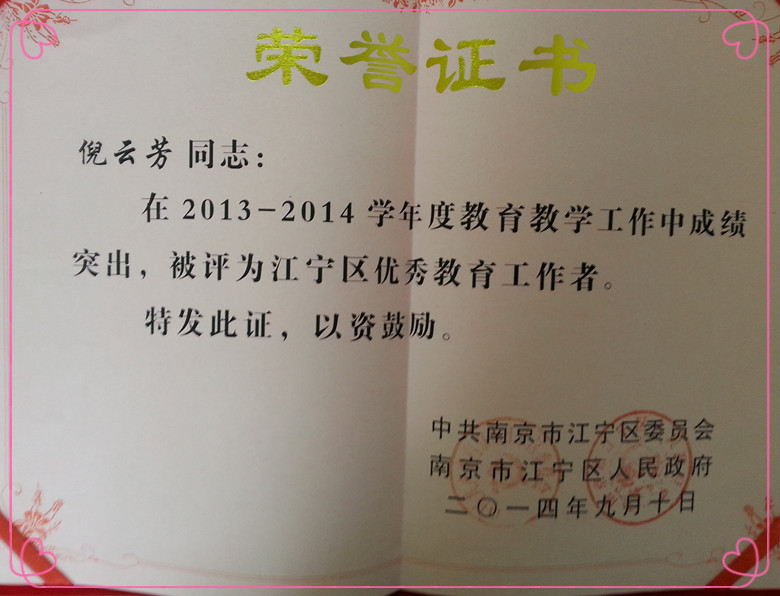 荣誉证书
倪云芳 同志：
在2013-2014学年度教育教学工作中成绩
突出，被评为江宁区优秀教育工作者。
特发此证，以资鼓励。
中共南京市江宁区委员会
南京市江宁区人民政府
二〇一四年九月十日